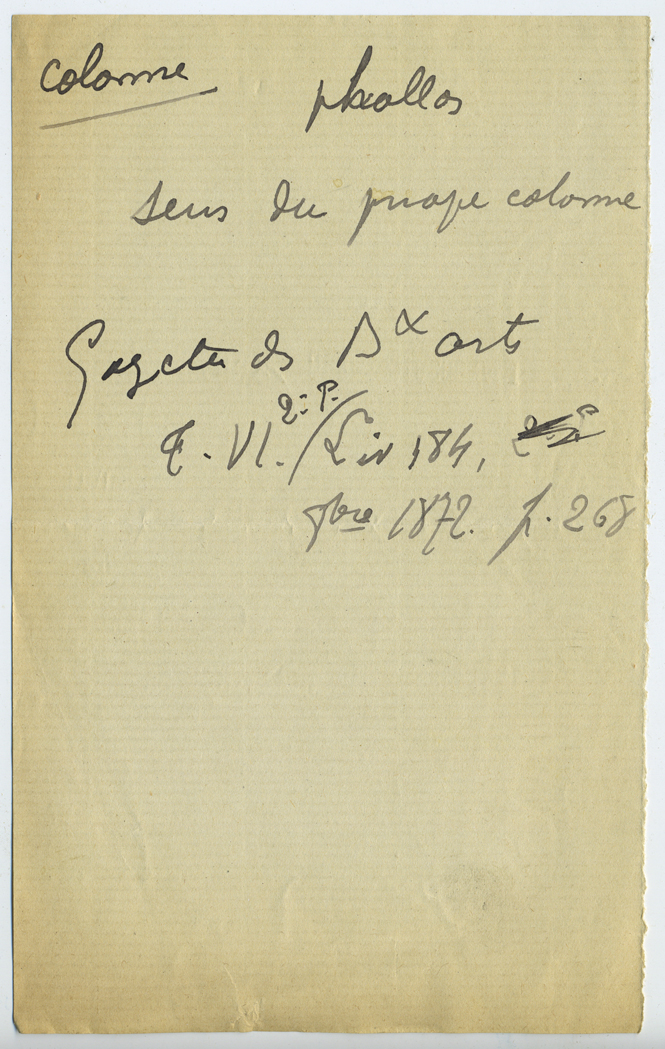 colonne phallos
sens du propre colonne
Gazette des Bx arts
T. VI. / 2e P. Liv 184,
8bre 1872. p. 268